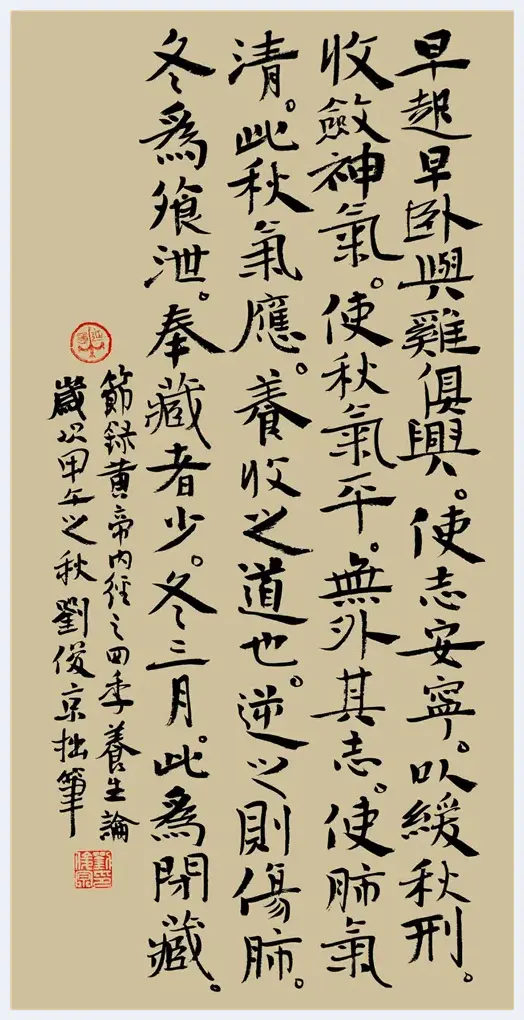 早起早卧與雞俱興。使志安寧。以緩秋刑。
收斂神氣。使秋氣平。無外其志。使肺氣
清。此秋氣應。養收之道也。逆之則傷肺。
冬為飧泄。奉藏者少。冬三月。此為閉藏。
節録黄帝內經之四季養生論
歲次甲午之秋劉俊京拙筆